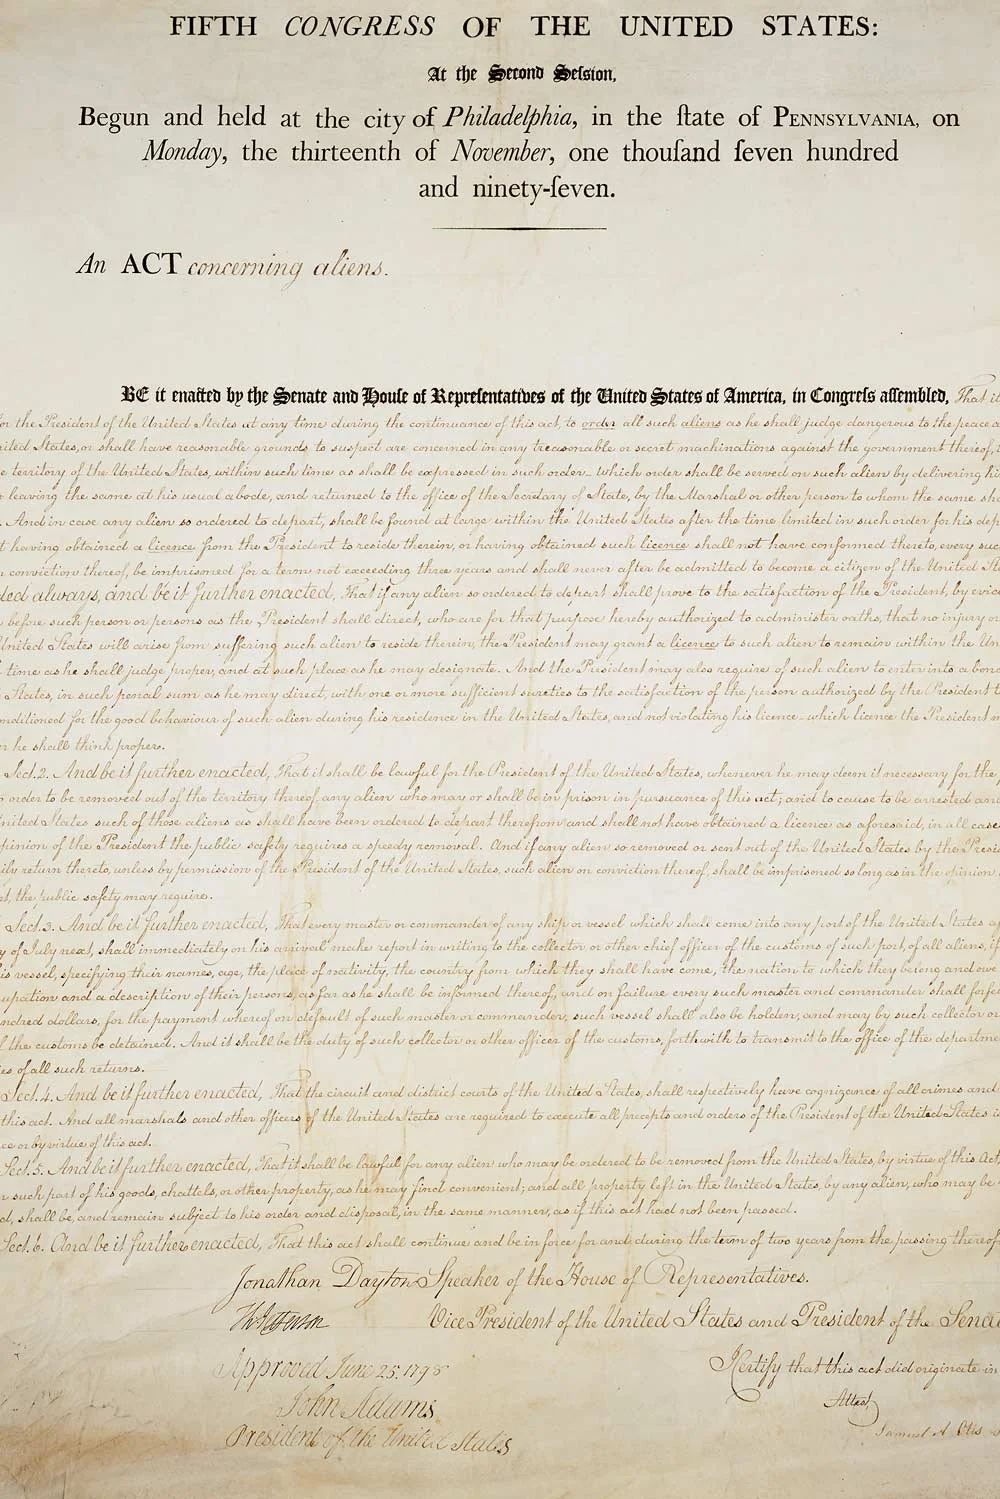 FIFTH CONGRESS OF THE UNITED STATES:
At the Second Seſſion,
Begun and held at the city of Philadelphia, in the ſtate of PENNSYLVANIA, on
Monday, the thirteenth of November, one thouſand ſeven hundred
and ninety-ſeven.
An ACT concerning aliens.
BE it enacted by the Senate and Houſe of Repreſentatives of the United States of America, in Congreſs aſſembled, That it
for the President of the United States at any time during the continuance of this act, to order all such aliens as he shall judge dangerous to the peace a
nited States, or shall have reasonable grounds to suspect are concerned in any treasonable or secret machinations against the government thereof,
e territory of the United States, within such time as shall be expressed in such order_ which order shall be served on such alien by delivering hi
r leaving the same at his usual abode, and returned to the office of the Secretary of State, by the Marshal or other person to whom the same sha
. And in case any alien so ordered to depart, shall be found at large within the United States after the time limited in such order for his dep
t having obtained a licence from the President to reside therein, or having obtained such licence shall not have conformed thereto, every suc
n conviction thereof, be imprisoned for a term not exceeding three years and shall never after be admitted to become a citizen of the United Sta
ded always, and be it further enacted, That if any alien so ordered to depart shall prove to the satisfaction of the President, by evid
e before such person or persons as the President shall direct, who are for that purpose hereby authorized to administer oaths, that no injury or
United States will arise from suffering such alien to reside therein, the President may grant a licence to such alien to remain within the Un
time as he shall judge proper, and at such place as he may designate. And the President may also require of such alien to enter into a bond
States, in such penal sum as he may direct, with one or more sufficient sureties to the satisfaction of the person authorized by the President t
nditioned for the good behaviour of such alien during his residence in the United States, and not violating his licence_ which licence the President m
er he shall think proper.
Sect. 2. And be it further enacted, That it shall be lawful for the President of the United States, whenever he may deem it necessary for the
o order to be removed out of the territory thereof, any alien who may or shall be in prison in pursuance of this act; and to cause to be arrested and
United States such of those aliens as shall have been ordered to depart therefrom and shall not have obtained a licence as aforesaid, in all case
pinion of the President the public safety requires a speedy removal. And if any alien so removed or sent out of the United States by the Presid
ily return thereto, unless by permission of the President of the United States, such alien on conviction thereof, shall be imprisoned so long as in the opinion
t, the public safety may require.
Sect. 3. And be it further enacted, That every master or commander of any ship or vessel which shall come into any port of the United States a
y of July next, shall immediately on his arrival make report in writing to the collector or other chief officer of the customs of such port, of all aliens, if
is vessel, specifying their names, age, the place of nativity, the country from which they shall have come, the nation to which they belong and owe
upation and a description of their persons, as far as he shall be informed thereof, and on failure every such master and commander shall forfe
ndred dollars, for the payment whereof on default of such master or commander, such vessel shall also be holden, and may by such collector or
f the customs be detained. And it shall be the duty of such collector or other officer of the customs, forthwith to transmit to the office of the departme
ies of all such returns.
Sect. 4. And be it further enacted, That the circuit and district courts of the United States, shall respectively have cognizance of all crimes and
this act. And all marshals and other officers of the United States are required to execute all precepts and orders of the President of the United States i
ce or by virtue of this act.
Sect. 5. And be it further enacted, That it shall be lawful for any alien who may be ordered to be removed from the United States, by virtue of this Act,
r such part of his goods, chattels, or other property, as he may find convenient; and all property left in the United States, by any alien, who may be
d, shall be, and remain subject to his order and disposal, in the same manner, as if this act had not been passed.
Sect. 6. And be it further enacted, That this act shall continue and be in force for and during the term of two years from the passing thereof
Jonathan Dayton Speaker of the House of Representatives.
Th Jefferson Vice President of the United States and President of the Sena
Approved June 25. 1798
I Certify that this act did originate in
John Adams
Attest,
President of the United States
Samuel A Otis